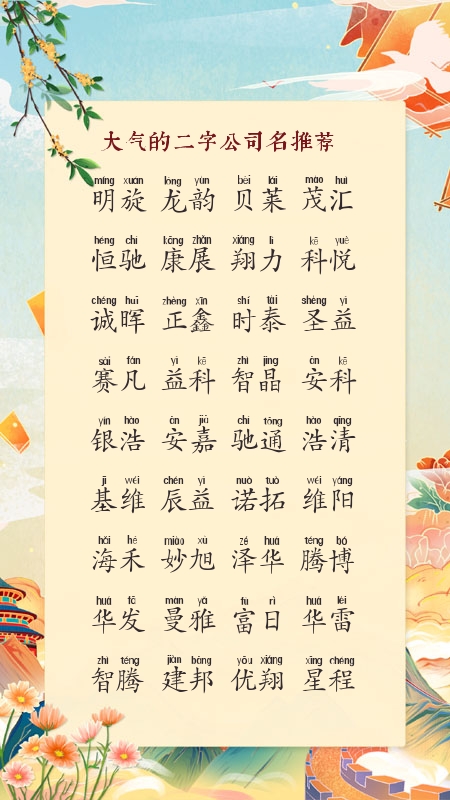 大气的二字公司名推荐
míng xuán lóng yùn bèi lái mào huì
明旋 龙韵 贝莱 茂汇
héng chí kāng zhǎn xiáng lì kē yuè
恒驰 康展 翔力 科悦
chéng huī zhèng xīn shí tài shèng yì
诚晖 正鑫 时泰 圣益
sài fán yì kē zhì jīng ān kē
赛凡 益科 智晶 安科
yín hào ān jiā chí tōng hào qīng
银浩 安嘉 驰通 浩清
jī wéi chén yì nuò tuò wéi yáng
基维 辰益 诺拓 维阳
hǎi hé miào xù zé huá téng bó
海禾 妙旭 泽华 腾博
huá fā màn yǎ fù rì huá léi
华发 曼雅 富日 华雷
zhì téng jiàn bāng yōu xiáng xīng chéng
智腾 建邦 优翔 星程